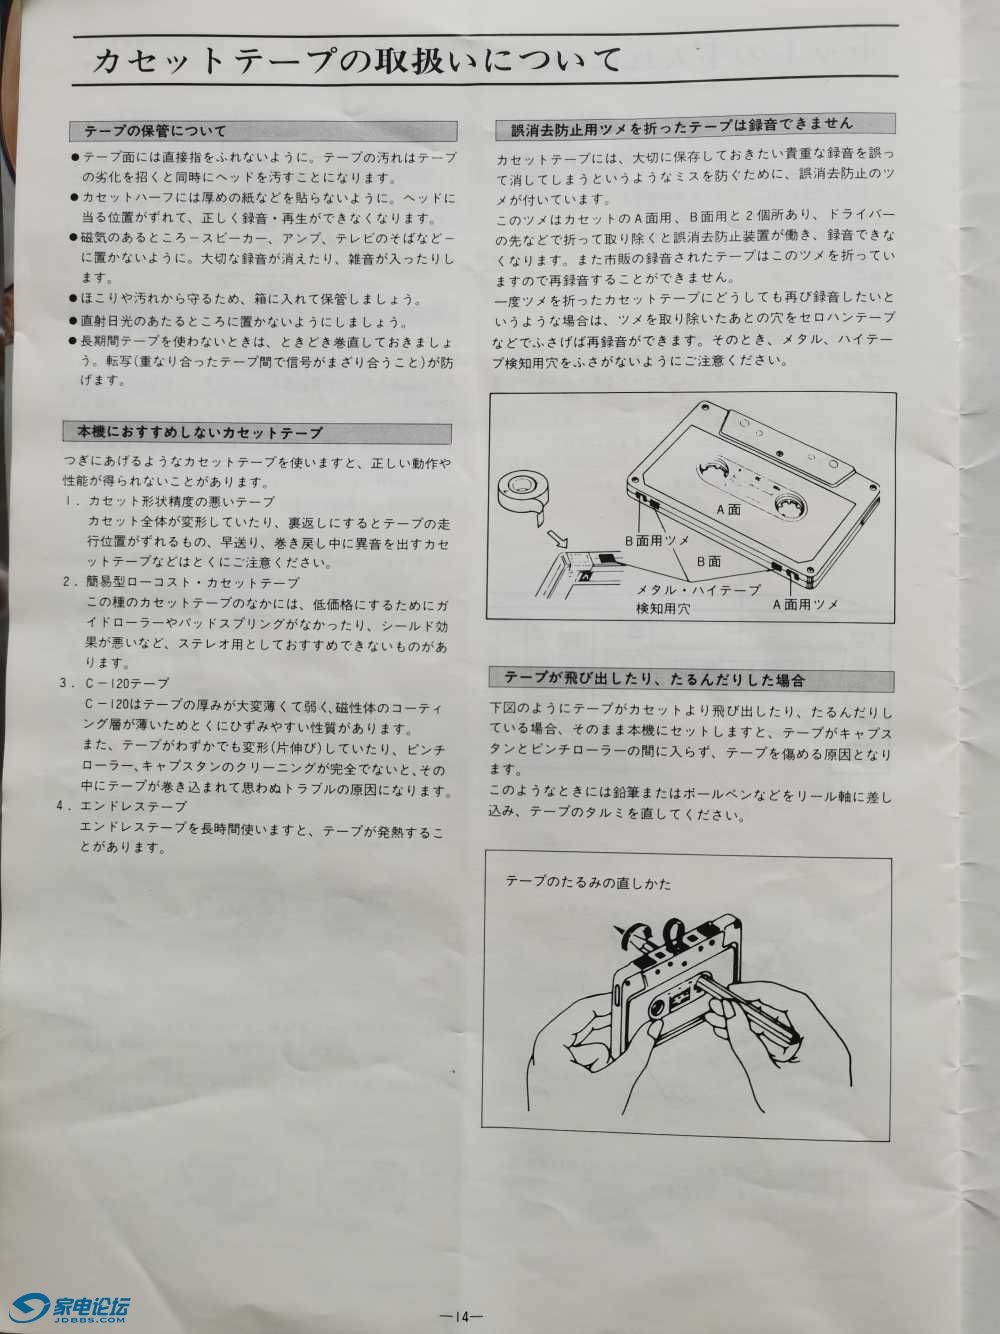 カセットテープの取扱いについて
テープの保管について
●テープ面には直接指をふれないように。テープの汚れはテープ
の劣化を招くと同時にヘッドを汚すことになります。
●カセットハーフには厚めの紙などを貼らないように。ヘッドに
当る位置がずれて、正しく録音・再生ができなくなります。
●磁気のあるところ－スピーカー、アンプ、テレビのそばなど－
に置かないように。大切な録音が消えたり、雑音が入ったりし
ます。
●ほこりや汚れから守るため、箱に入れて保管しましょう。
●直射日光のあたるところに置かないようにしましょう。
●長期間テープを使わないときは、ときどき巻直しておきましょ
う。転写(重なり合ったテープ間で信号がまざり合うこと)が防
げます。
本機におすすめしないカセットテープ
つぎにあげるようなカセットテープを使いますと、正しい動作や
性能が得られないことがあります。
1．カセット形状精度の悪いテープ
カセット全体が変形していたり、裏返しにするとテープの走
行位置がずれるもの、早送り、巻き戻し中に異音を出すカセ
ットテープなどはとくにご注意ください。
2．簡易型ローコスト・カセットテープ
この種のカセットテープのなかには、低価格にするためにガ
イドローラーやパッドスプリングがなかったり、シールド効
果が悪いなど、ステレオ用としておすすめできないものがあ
ります。
3．C－120テープ
C－120はテープの厚みが大変薄くて弱く、磁性体のコーティ
ング層が薄いためとくにひずみやすい性質があります。
また、テープがわずかでも変形(片伸び)していたり、ピンチ
ローラー、キャプスタンのクリーニングが完全でないと、その
中にテープが巻き込まれて思わぬトラブルの原因になります。
4．エンドレステープ
エンドレステープを長時間使いますと、テープが発熱するこ
とがあります。
誤消去防止用ツメを折ったテープは録音できません
カセットテープには、大切に保存しておきたい貴重な録音を誤っ
て消してしまうというようなミスを防ぐために、誤消去防止のツ
メが付いています。
このツメはカセットのA面用、B面用と2個所あり、ドライバー
の先などで折って取り除くと誤消去防止装置が働き、録音できな
くなります。また市販の録音されたテープはこのツメを折ってい
ますので再録音することができません。
一度ツメを折ったカセットテープにどうしても再び録音したいと
いうような場合は、ツメを取り除いたあとの穴をセロハンテープ
などでふさげば再録音ができます。そのとき、メタル、ハイテー
プ検知用穴をふさがないようにご注意ください。
A面
B面用ツメ
B面
メタル・ハイテープ
検知用穴
A面用ツメ
テープが飛び出したり、たるんだりした場合
下図のようにテープがカセットより飛び出したり、たるんだりし
ている場合、そのまま本機にセットしますと、テープがキャプス
タンとピンチローラーの間に入らず、テープを傷める原因となり
ます。
このようなときには鉛筆またはボールペンなどをリール軸に差し
込み、テープのタルミを直してください。
テープのたるみの直しかた
—14—
家电论坛
JDBBS.COM